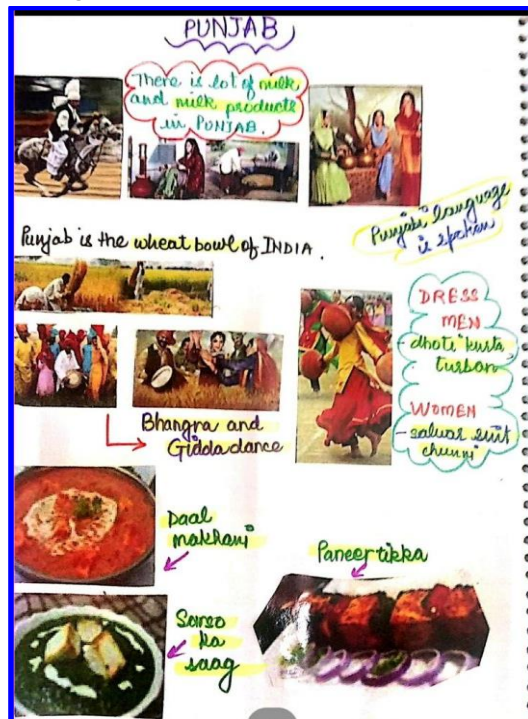 PUNJAB
There is lot of milk
and milk products
in PUNJAB.
Punjabi language
is spoken
Punjab is the wheat bowl of INDIA.
DRESS
MEN
- dhoti kurta
turban
WOMEN
- salwar suit
chunni
Bhangra and
Gidda dance
Daal
makhani
Paneer tikka
Sarso
ka
saag